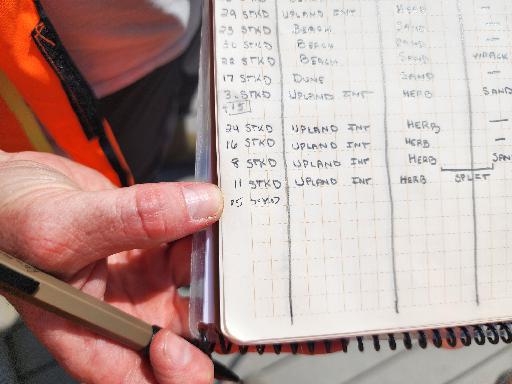 29 STKD UPLAND INT HERB —
25 STKD BEACH SAND
30 STKD BEACH SAND
22 STKD BEACH SAND WRACK
17 STKD DUNE SAND —
3 STKD UPLAND INT HERB SAND
24 STKD UPLAND INT HERB —
16 STKD UPLAND INT HERB —
8 STKD UPLAND INT HERB SAN
11 STKD UPLAND INT HERB SPLIT